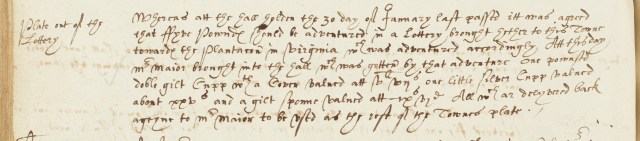 Plate out of the
Lottery
Whereas att the hall holden the 30 day of January last passed itt was agreed
that ffyve Powndes should be adventured in a Lottery brought hether to this Towne
towards the Plantacon in Virginia wch was adventured accordingly Att this day
mr Maior brought into the hall wch was gotten by that adventure One
doble gilt Cupp wth a Cover valued att one little Silver Cupp valued
about xxvs and a gilt spone valued att All wch ar delivered back
agayne to mr Maior to be used as the rest of the Townes plate.